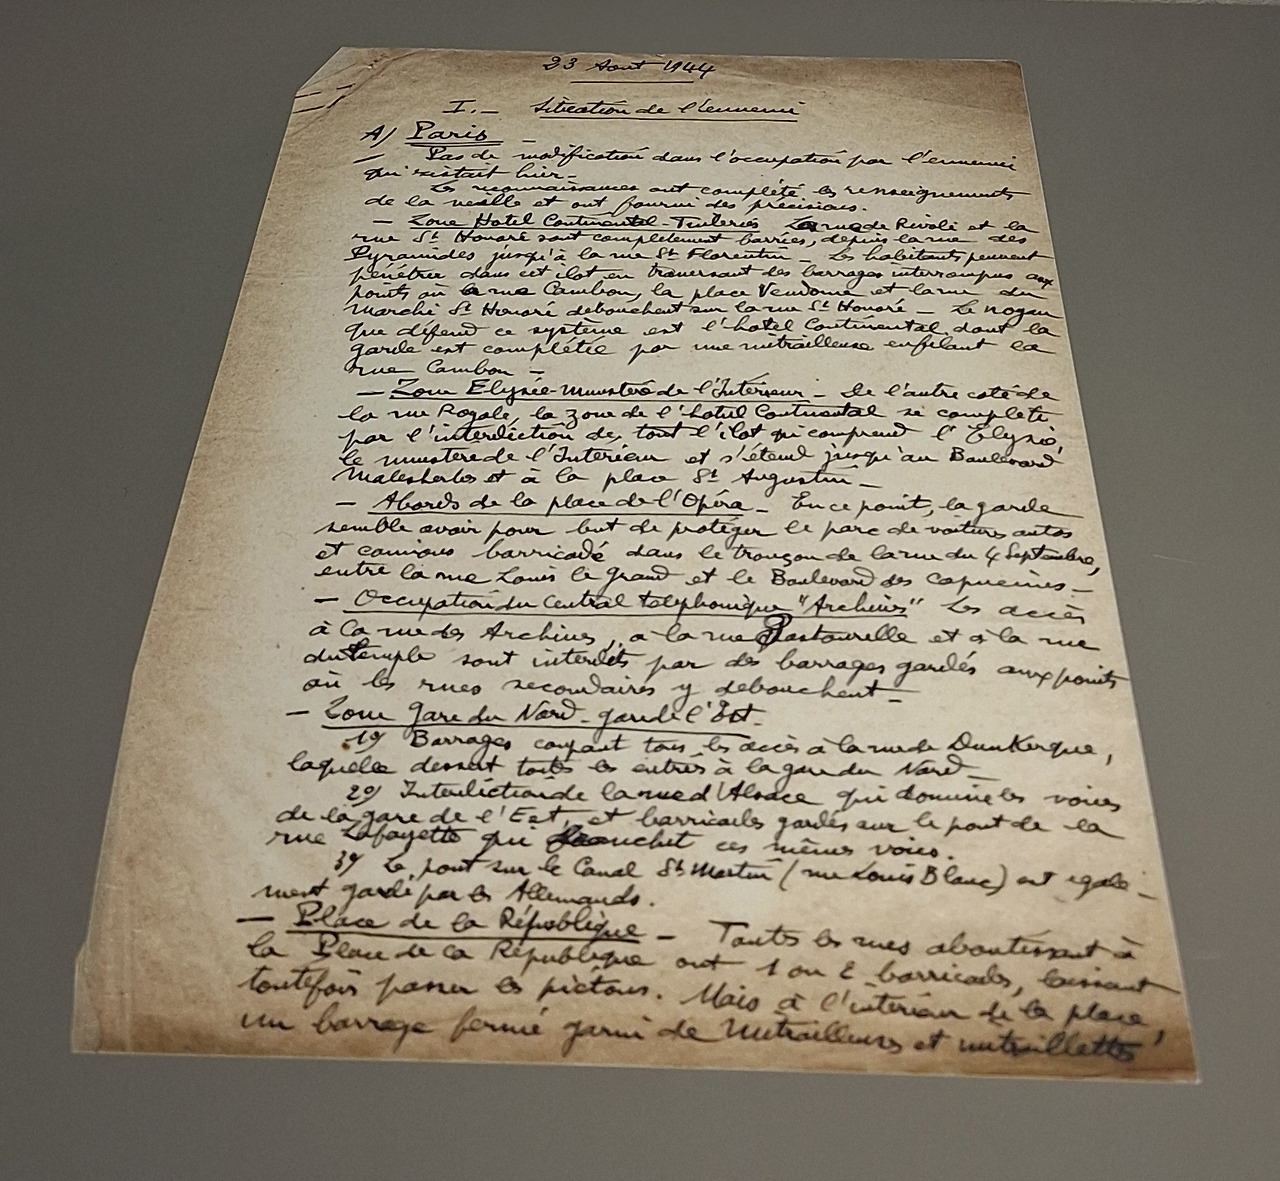 23 Aout 1944
I. - Situation de l'ennemi
A/ Paris -
- Pas de modification dans l'occupation par l'ennemi
qui existait hier -
Les reconnaissances ont complété les renseignements
de la veille et ont fourni des précisions.
- Zone Hotel Continental - Tuileries La rue de Rivoli et la
rue St Honoré sont complètement barrées, depuis la rue des
Pyramides jusqu'à la rue St Florentin - Les habitants peuvent
pénétrer dans cet ilot en traversant des barrages interrompus aux
points où la rue Cambon, la place Vendome et la rue du
Marché St Honoré débouchent sur la rue St Honoré - Le noyau
que défend ce système est l'hotel Continental dont la
garde est complétée par une mitrailleuse enfilant la
rue Cambon -
- Zone Elysée-Ministère de l'Intérieur - De l'autre coté de
la rue Royale, la zone de l'hotel Continental se complète
par l'interdiction de tout l'ilot qui comprend l'Elysée,
le ministère de l'Intérieur et s'étend jusqu'au Boulevard
Malesherbes et à la place St Augustin -
- Abords de la place de l'Opéra - En ce point, la garde
semble avoir pour but de protéger le parc de voitures autos
et camions barricadé dans le tronçon de la rue du 4 Septembre,
entre la rue Louis le Grand et le Boulevard des Capucines -
- Occupation du Central téléphonique "Archives" Les accès
à la rue des Archives, à la rue Pastourelle et à la rue
du Temple sont interdits par des barrages gardés aux points
où les rues secondaires y débouchent -
- Zone Gare du Nord - gare de l'Est -
1°/ Barrages coupant tous les accès à la rue de Dunkerque,
laquelle dessert toutes les entrées à la gare du Nord -
2°/ Interdiction de la rue d'Alsace qui domine les voies
de la gare de l'Est, et barricades gardées sur le pont de la
rue Lafayette qui ces mêmes voies.
3°/ Le pont sur le Canal St Martin (rue Louis Blanc) est égale-
ment gardé par les Allemands.
- Place de la République - Toutes les rues aboutissant à
la Place de la République ont 1 ou 2 barricades, laissant
toutefois passer les piétons. Mais à l'intérieur de la place,
un barrage fermé garni de mitrailleuses et mitraillettes